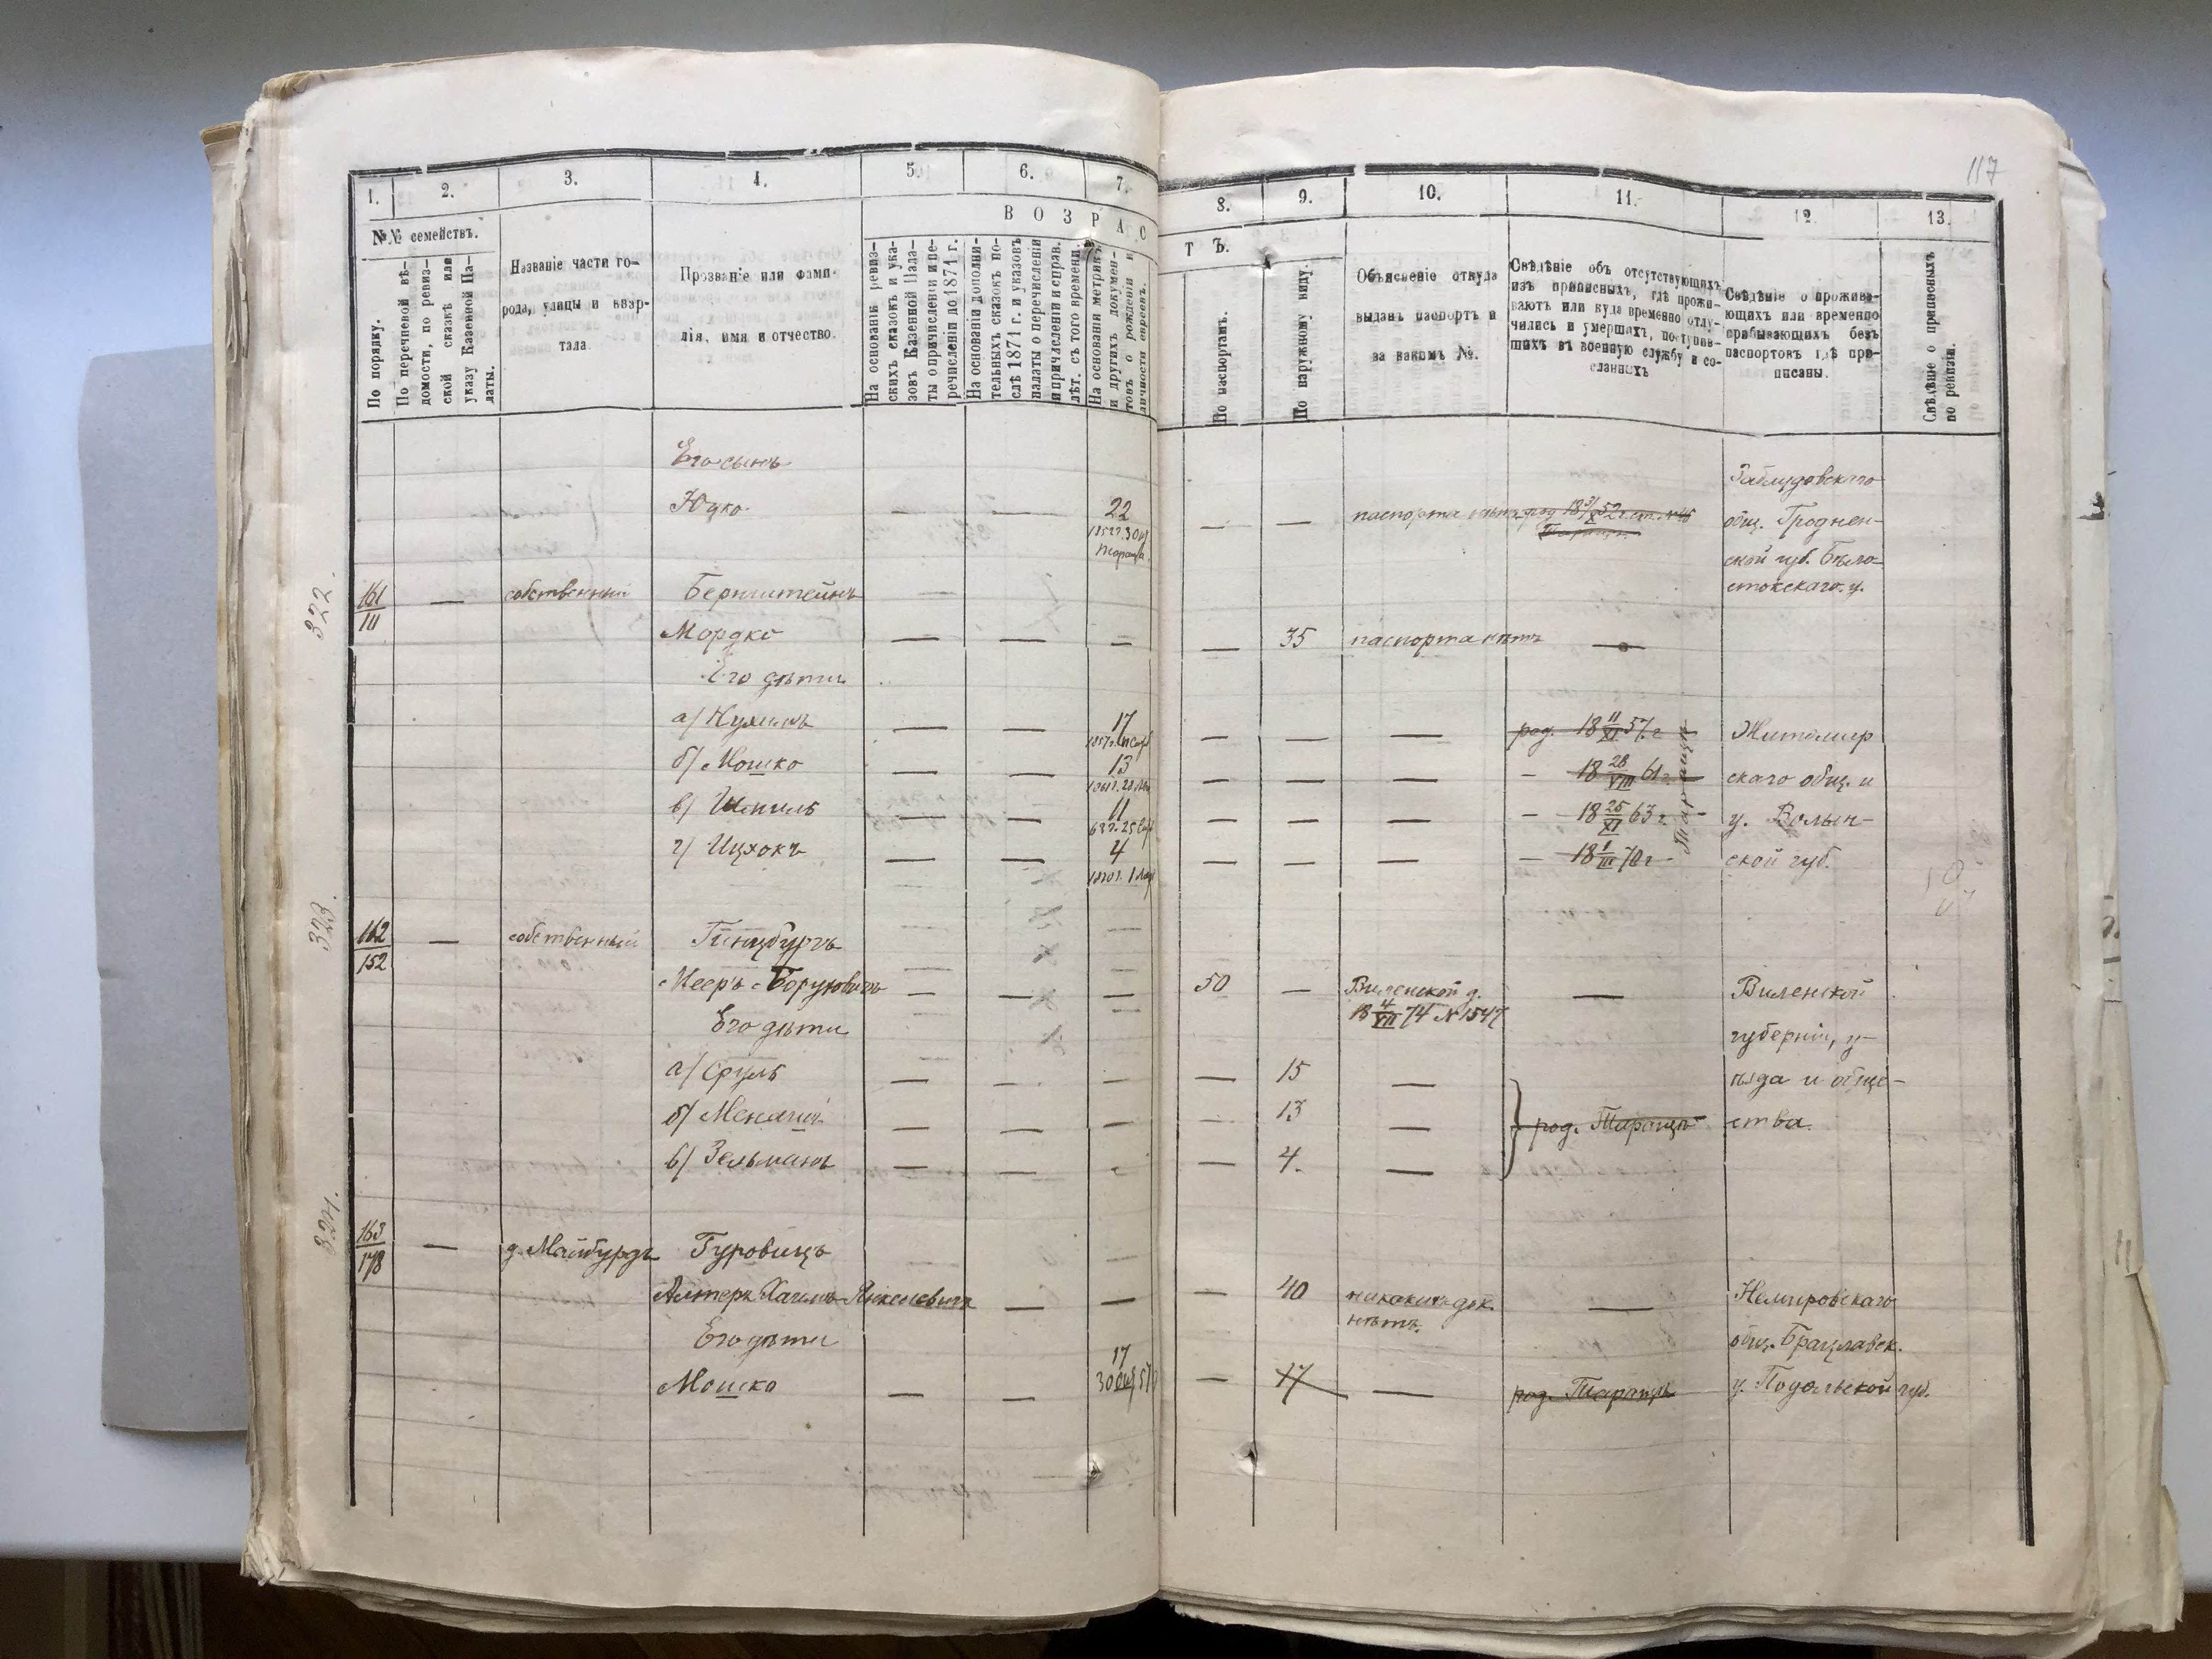 117
1.
2.
3.
4.
5.
6.
7.
8.
9.
10.
11.
12.
13.
№№ семействъ.
ВОЗРАС
ТЪ.
По порядку.
По перечневой вѣ-
домости, по ревиз-
ской сказкѣ или
указу Казенной Па-
латы.
Названіе части го-
рода, улицы и квар-
тала.
Прозваніе или фами-
лія, имя и отчество.
На основаніи ревиз-
скихъ сказокъ и ука-
зовъ Казенной Пала-
ты о причисленіи и пе-
речисленіи до 1871 г.
На основаніи дополни-
тельныхъ сказокъ по-
слѣ 1871 г. и указовъ
палаты о перечисленіи
и причисленіи и справ.
лѣт. съ того времени.
На основаніи метрикъ
и другихъ докумен-
товъ о рожденіи и
личности евреевъ.
По паспортамъ.
По наружному виду.
Объясненіе откуда
выданъ паспортъ и
за какимъ №.
Свѣдѣніе объ отсутствующихъ
изъ приписныхъ, гдѣ прожи-
ваютъ или куда временно отлу-
чились и умершихъ, поступив-
шихъ въ военную службу и со-
сланныхъ
Свѣдѣніе о прожива-
ющихъ или временно
прибывающихъ безъ
паспортовъ гдѣ при-
писаны.
Свѣдѣніе о приписныхъ
по ревизіи.
Его сынъ
Юдко — — 22 — — паспорта нѣтъ
Заблудовскаго
общ. Гроднен-
ской губ. Бѣло-
стокскаго у.
322.
161
111
— собственный Бернштейнъ
Мордко — — — — 35 паспорта нѣтъ —
Его дѣти
а/ Нухимъ — — 17 — — — род. 18 11/XI 57 г Житомир
б/ Мошко — — 13 — — — — 18 28/VIII 61 г скаго общ. и
в/ Шмиль — — 11 — — — — 18 25/XI 63 г у. Волын-
г/ Ицхокъ — — 4 — — — — 18 1/III 70 г ской губ.
323.
162
152
— собственный Гинцбургъ
Мееръ Боруховичъ — — — 50 — Виленской д. — Виленской
18 4/VII 74 № 1547
Его дѣти губерніи, у-
а/ Сруль — — — — 15 — ѣзда и обще-
б/ — — — — 13 — род. Тараща ства.
в/ Зельманъ — — — — 4. —
324.
163
178
— д. Майбурдъ Гуровицъ
Алтеръ Хаимъ Янкелевичъ — — — 40 никакихъ док. — Немировскаго
нѣтъ.
Его дѣти общ. Брацлавск.
Мошко — — 17 — 17 — род. Тараща у. Подольской губ.